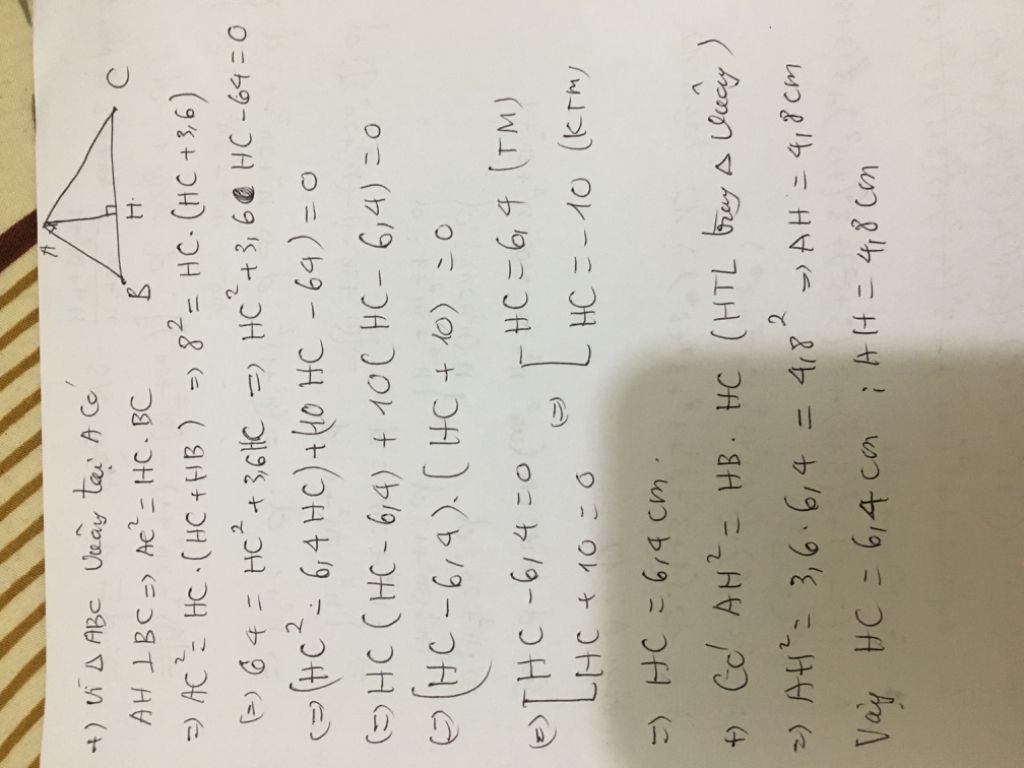 +) Vì Δ ABC vuông tại A có
AH ⊥ BC => AC² = HC.BC
=> AC² = HC.(HC + HB) => 8² = HC.(HC + 3,6)
(=) 64 = HC² + 3,6HC => HC² + 3,6 HC - 64 = 0
(=) (HC² - 6,4 HC) + (10 HC - 64) = 0
(=) HC (HC - 6,4) + 10 (HC - 6,4) = 0
(=) (HC - 6,4).(HC + 10) = 0
(=) [ HC - 6,4 = 0 (=) [ HC = 6,4 (TM)
[ HC + 10 = 0 [ HC = -10 (KTM)
=> HC = 6,4 cm.
+) Có AH² = HB.HC (HTL trong Δ vuông)
=> AH² = 3,6.6,4 = 4,8² => AH = 4,8cm
Vậy HC = 6,4 cm ; AH = 4,8 cm
A
B
H
C